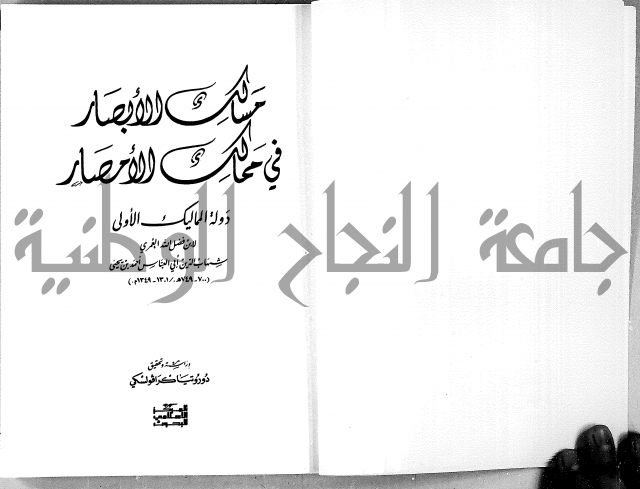 مسالك الأبصار
في ممالك الأمصار
دولة المماليك الأولى
لابن فضل الله العمري
شهاب الدين أبي العباس أحمد بن يحيى
(٧٠٠ - ٧٤٩هـ / ١٣٠١ - ١٣٤٩م)
جامعة النجاح الوطنية
دراسة وتحقيق
دوروتيا كرافولسكي
المركز
الإسلامي
للبحوث